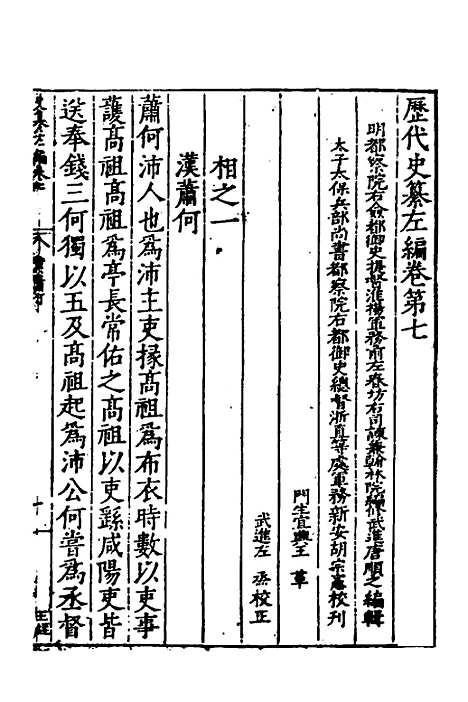 歷代史纂左編卷第七
明都察院右僉都御史提督淮揚軍務前左春坊右司諫兼翰林院編修武進唐順之編輯
太子太保兵部尚書都察院右都御史總督浙直等處軍務新安胡宗憲校刊
門生宜興王革
武進左烝校正
相之一
漢蕭何
蕭何沛人也為沛主吏掾高祖為布衣時數以吏事
護高祖高祖為亭長常佑之高祖以吏繇咸陽吏皆
送奉錢三何獨以五及高祖起為沛公何嘗為丞督